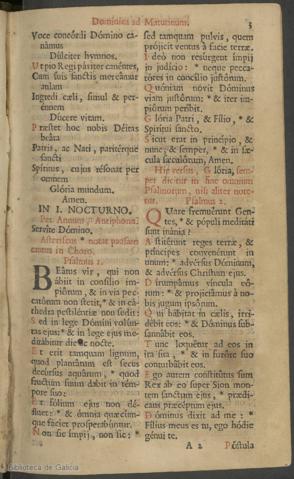 Dominica ad Matutinum. 3
Voce concórdi Dómino canámus
Dúlciter hymnos.
Ut pio Regi páriter canéntes,
Cum suis sanctis mereámur aulam
Ingredi cæli, simul & perénnem
Dúcere vitam.
Præstet hoc nobis Déitas beáta
Patris, ac Nati, paritérque sancti
Spíritus, cujus résonat per omnem
Glória mundum.
Amen.
IN I. NOCTURNO.
Per Annum, Antiphona.
Servíte Dómino.
Asteriscus * notat pausam
cantus in Choro.
Psalmus 1.
BEátus vir, qui non
ábiit in consílio impiórum,
& in via peccatórum
non stetit, * & in cáthedra
pestiléntiæ non sedit:
Sed in lege Dómini volúntas
ejus: * & in lege ejus meditábitur
die ac nocte.
Et erit tamquam lignum,
quod plantátum est secus
decúrsus aquárum, * quod
fructum suum dabit in témpore
suo:
Et fólium ejus non défluet:
* & ómnia quæcúmque
fáciet prosperabúntur.
Non sic ímpii, non sic: *
sed tamquam pulvis, quem
prójicit ventus à fácie terræ.
Ideò non resúrgent ímpii
in judício: * neque peccatóres
in concílio justórum.
Quóniam novit Dóminus
viam justórum: * & iter impiórum
períbit.
Glória Patri, & Fílio, * &
Spirítui sancto.
Sicut erat in princípio, &
nunc, & semper, * & in sæcula
sæculórum, Amen.
Hic versus, Glória, semper
dicitur in fine omnium
Psalmorum, nisi aliter notetur.
Psalmus 2.
QUare fremuérunt Gentes,
* & pópuli meditáti
sunt inánia?
Astitérunt reges terræ, &
príncipes convenérunt in
unum: * advérsùs Dóminum,
& advérsùs Christum ejus.
Dirumpámus víncula eórum:
* & projiciámus à nobis
jugum ipsórum.
Qui hábitat in cælis, irridébit
eos: * & Dóminus subsannábit
eos.
Tunc loquétur ad eos in
ira sua, * & in furóre suo
conturbábit eos.
Ego autem constitútus sum
Rex ab eo super Sion montem
sanctum ejus, * prædicans
præcéptum ejus.
Dóminus dixit ad me: *
Fílius meus es tu, ego hódie
génui te.
A 2 Póstula
Biblioteca de Galicia